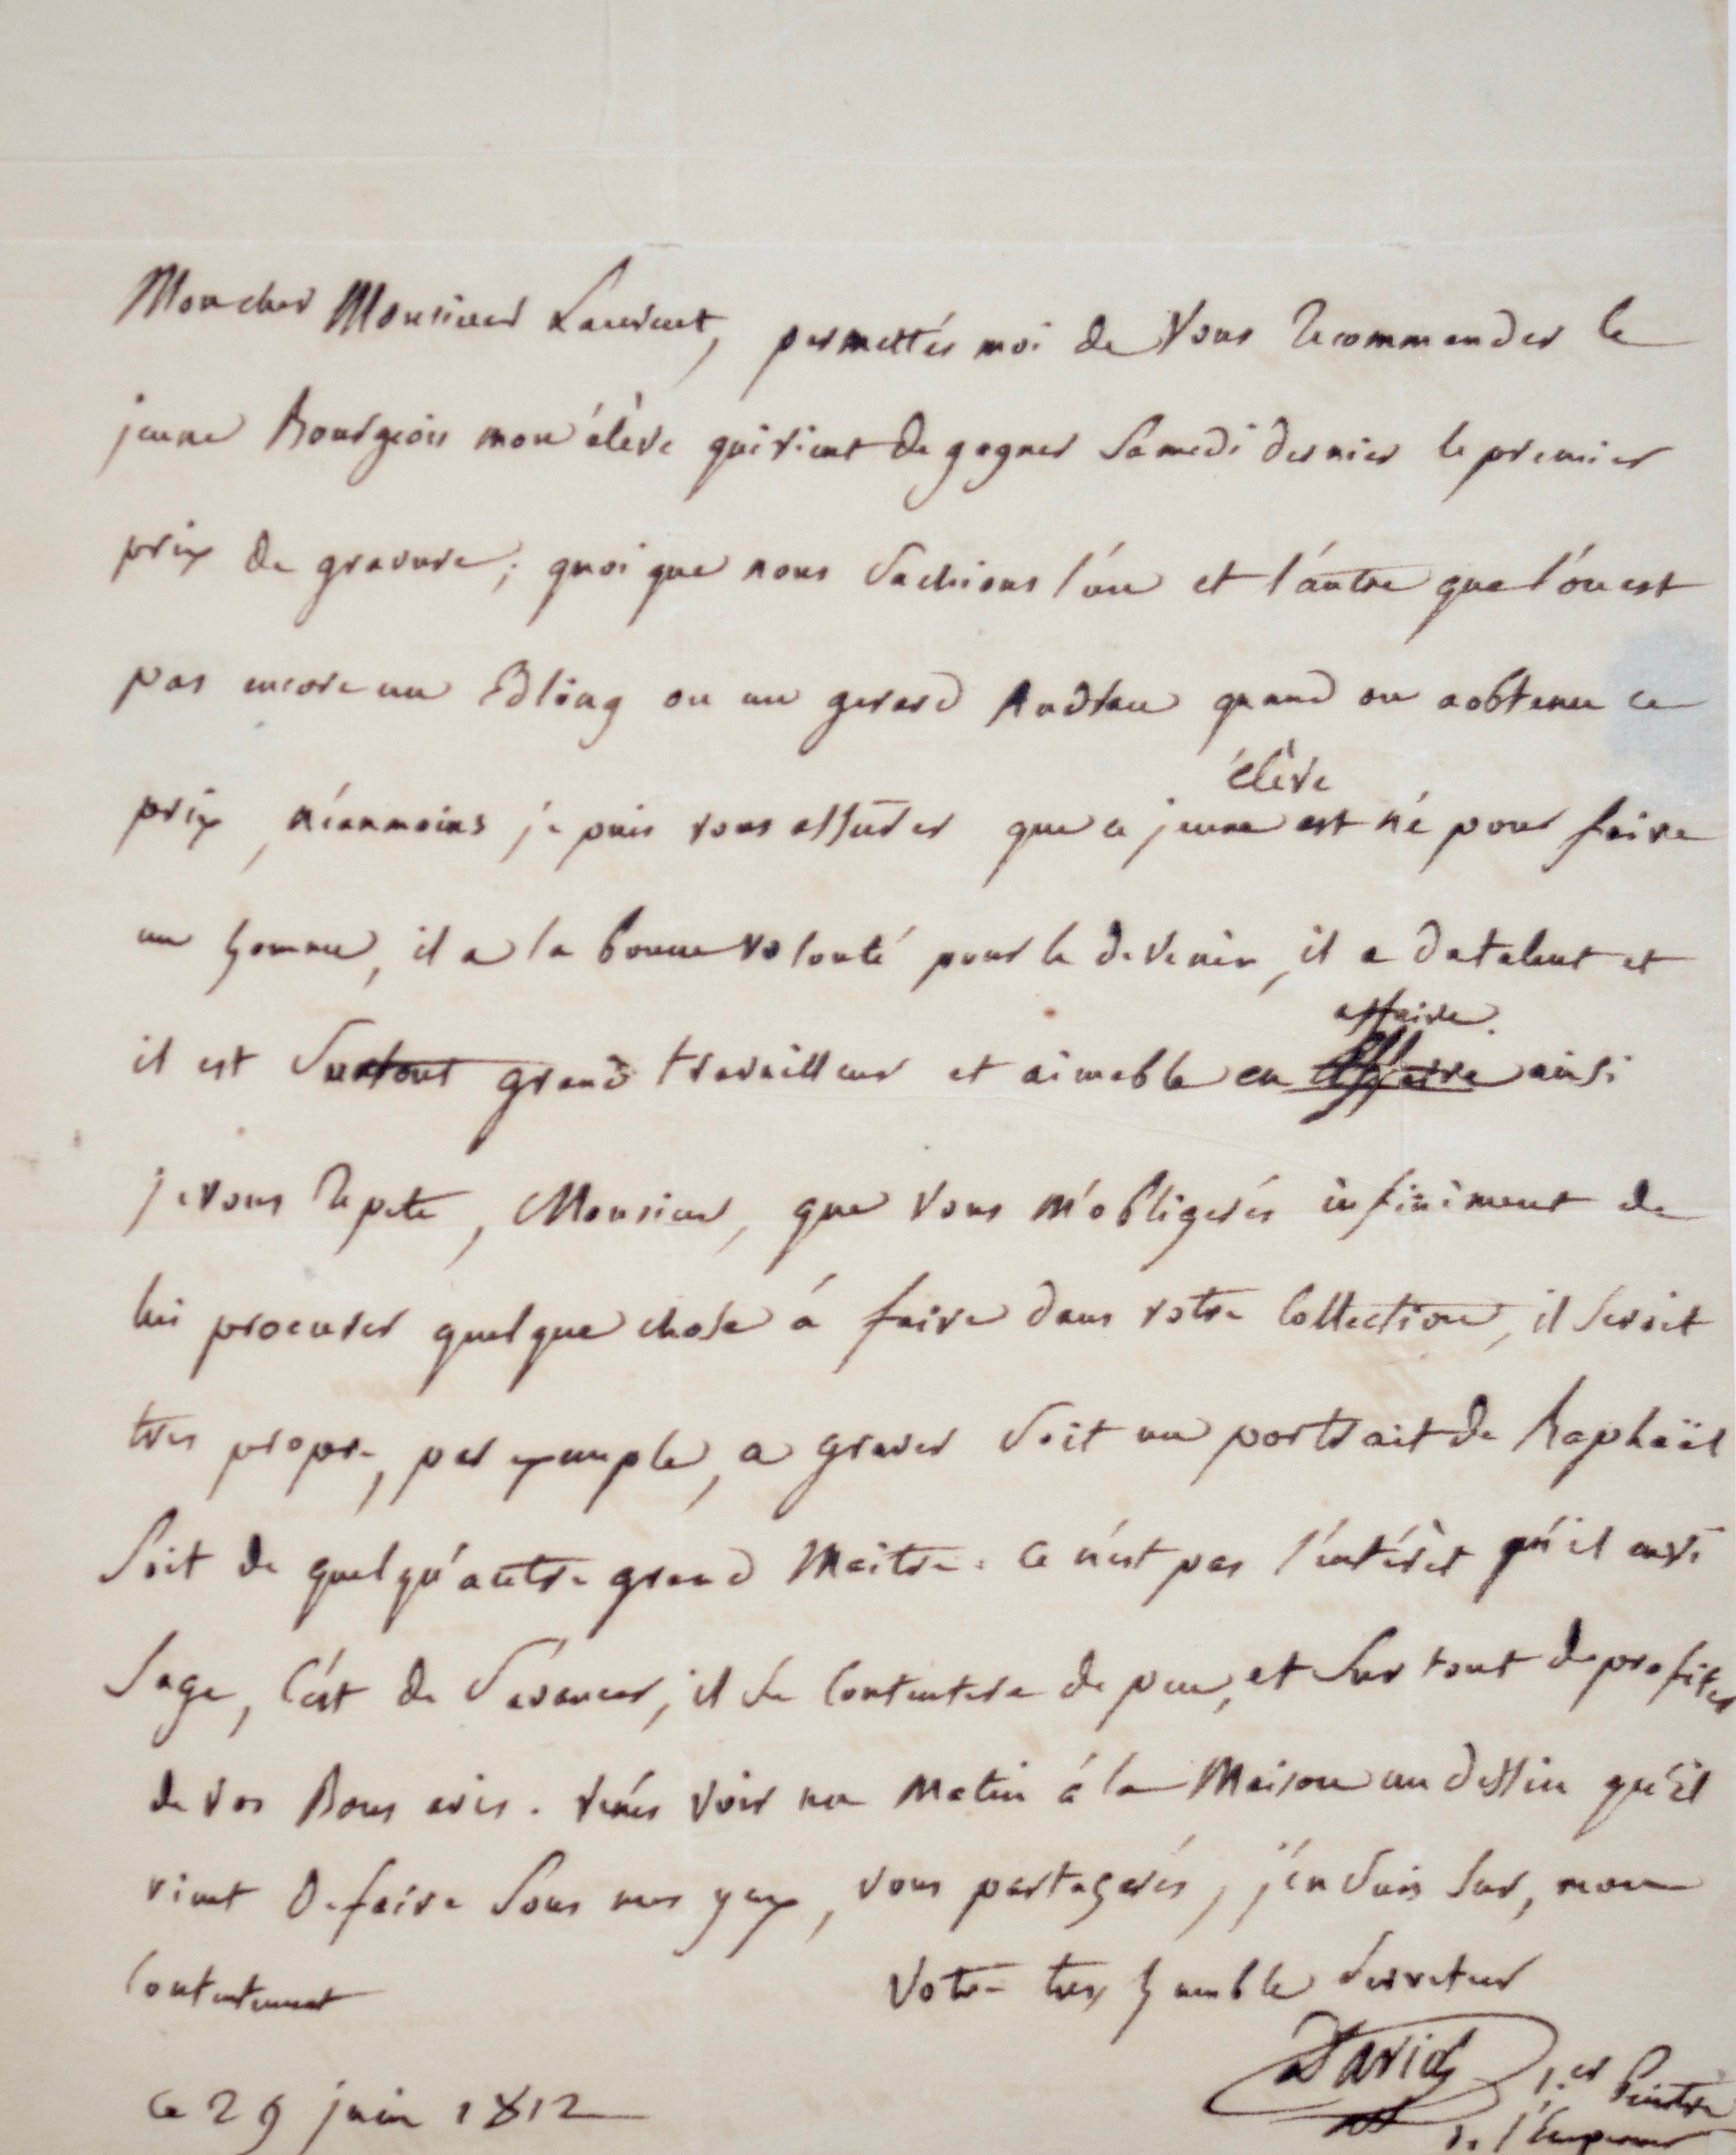 Mon cher Monsieur Laurent, permettés moi de Vous Recommender le
jeune Bourgeois mon élève qui vient de gagner Samedi dernier le premier
prix de gravure; quoique nous Sachions l'un et l'autre que l'on est
pas encore un Edling ou un gerard Audran quand on a obtenu ce
élève
prix, néanmoins je puis vous assurer que ce jeune est né pour faire
un homme, il a la bonne volonté pour le devenir, il a du talent et
affaire.
il est Surtout grand travailleur et aimable en affaire ainsi
je vous Repete, Monsieur, que Vous m'obligerés infiniment de
lui procurer quelque chose á faire dans votre Collection, il Seroit
tres propre, par exemple, a graver Soit un portrait de Raphaël
Soit de quelqu'autre grand Maitre. Ce n'est pas l'intérèt qu'il envi
Sage, C'est de S'avancer, il Se Contentera de peu, et Sur tout de profiter
de vos Bons avis. venés voir un Matin á la Maison un dessin qu'Il
vient De faire Sous mes yeux, vous partagerés, j'en Suis Sur, mon
Contentement Votre tres humble Serviteur
David 1.er Peintre
Ce 29 juin 1812 de l'Empereur